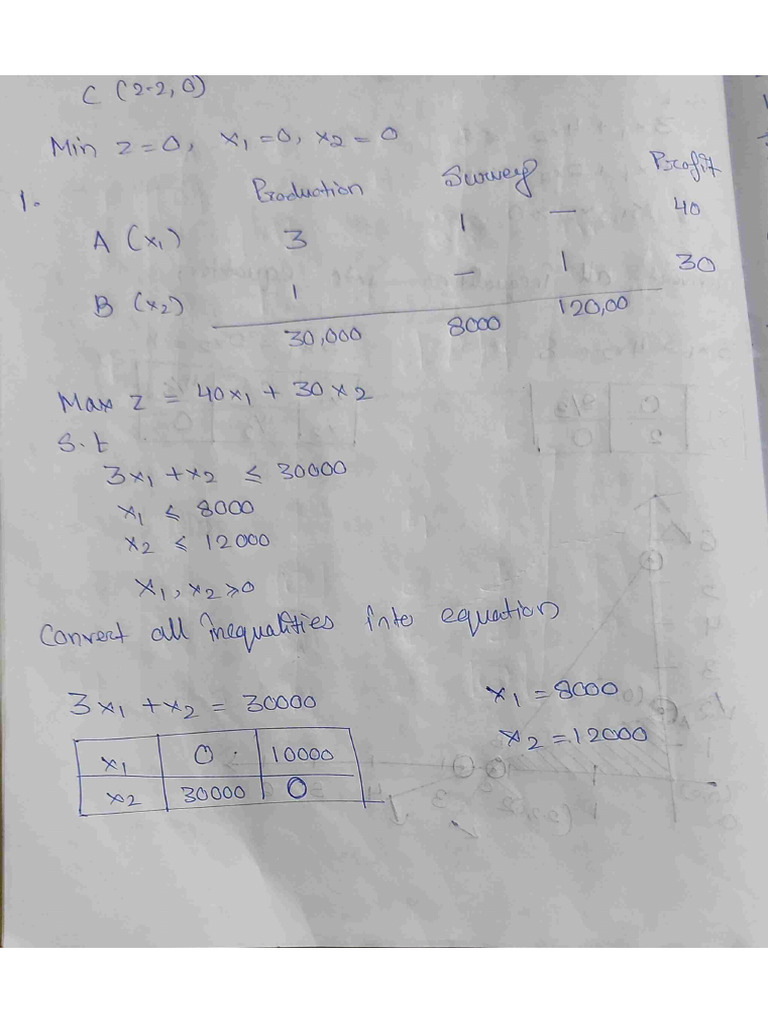 C (2.2, 0)
Min z = 0, x1 = 0, x2 = 0
1. Production Survey Profit
A (x1) 3 1 — 40
B (x2) 1 — 1 30
30,000 8000 120,00
Max z = 40x1 + 30x2
S.t
3x1 + x2 ≤ 30000
x1 ≤ 8000
x2 ≤ 12000
x1, x2 ≥ 0
Convert all inequalities into equation
3x1 + x2 = 30000 x1 = 8000
x2 = 12000
x1 0 10000
x2 30000 0